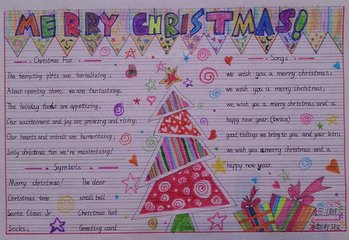 MERRY CHRISTMAS!
Christmas Fun
The tempting gifts are tantalizing,
About opening them, we are fantasizing.
The holiday foods are appetizing;
Our excitement and joy are growing and rising;
Our hearts and minds are harmonizing;
Jolly christmas fun we're maximizing!
Symbols
Merry christmas! The deer
Christmas tree small bell
Santa Claus Jr. Christmas hat
Socks, Greeting card
Songs
we wish you a merry christmas;
we wish you a merry christmas;
we wish you a merry christmas and a
happy new year. (twice)
good tidings we bring to you and your kin;
we wish you a merry christmas and a
happy new year.